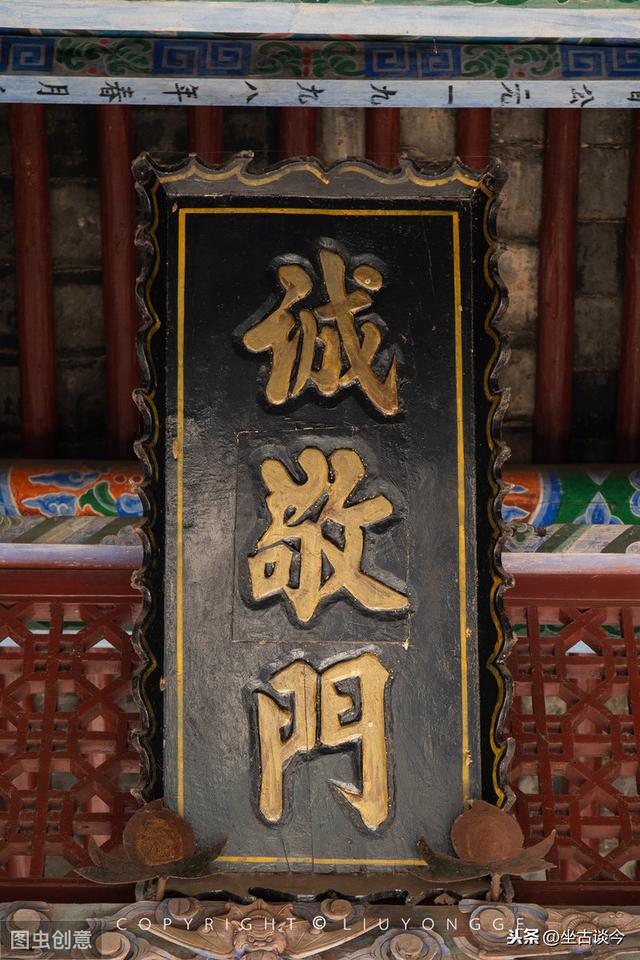 公元一九九八年春月
誠敬門
COPYRIGHT©LIUYONGGE
图虫创意
头条@坐古谈今